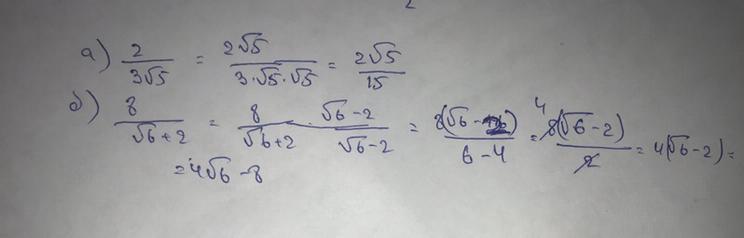 а) 2/(3√5) = 2√5/(3·√5·√5) = 2√5/15
б) 8/(√6+2) = 8/(√6+2) · (√6-2)/(√6-2) = 8(√6-2)/(6-4) = 8(√6-2)/2 = 4(√6-2) =
= 4√6-8